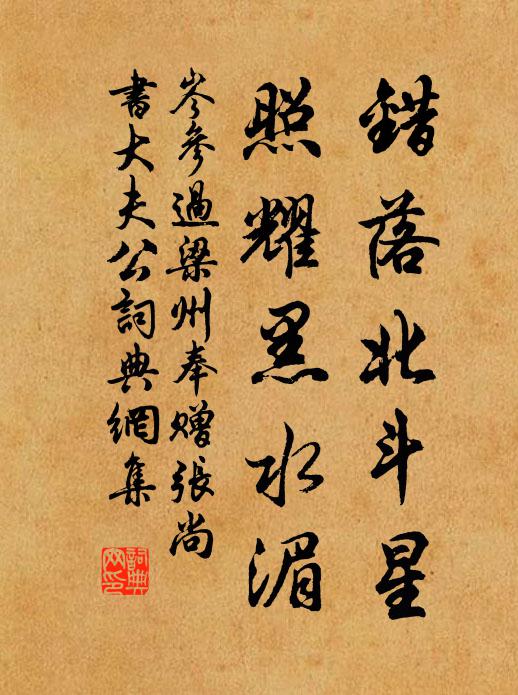 錯落北斗星
照耀黑水湄
岑參過梁州奉贈張尚
書大夫公詞典網集
詞典
网印